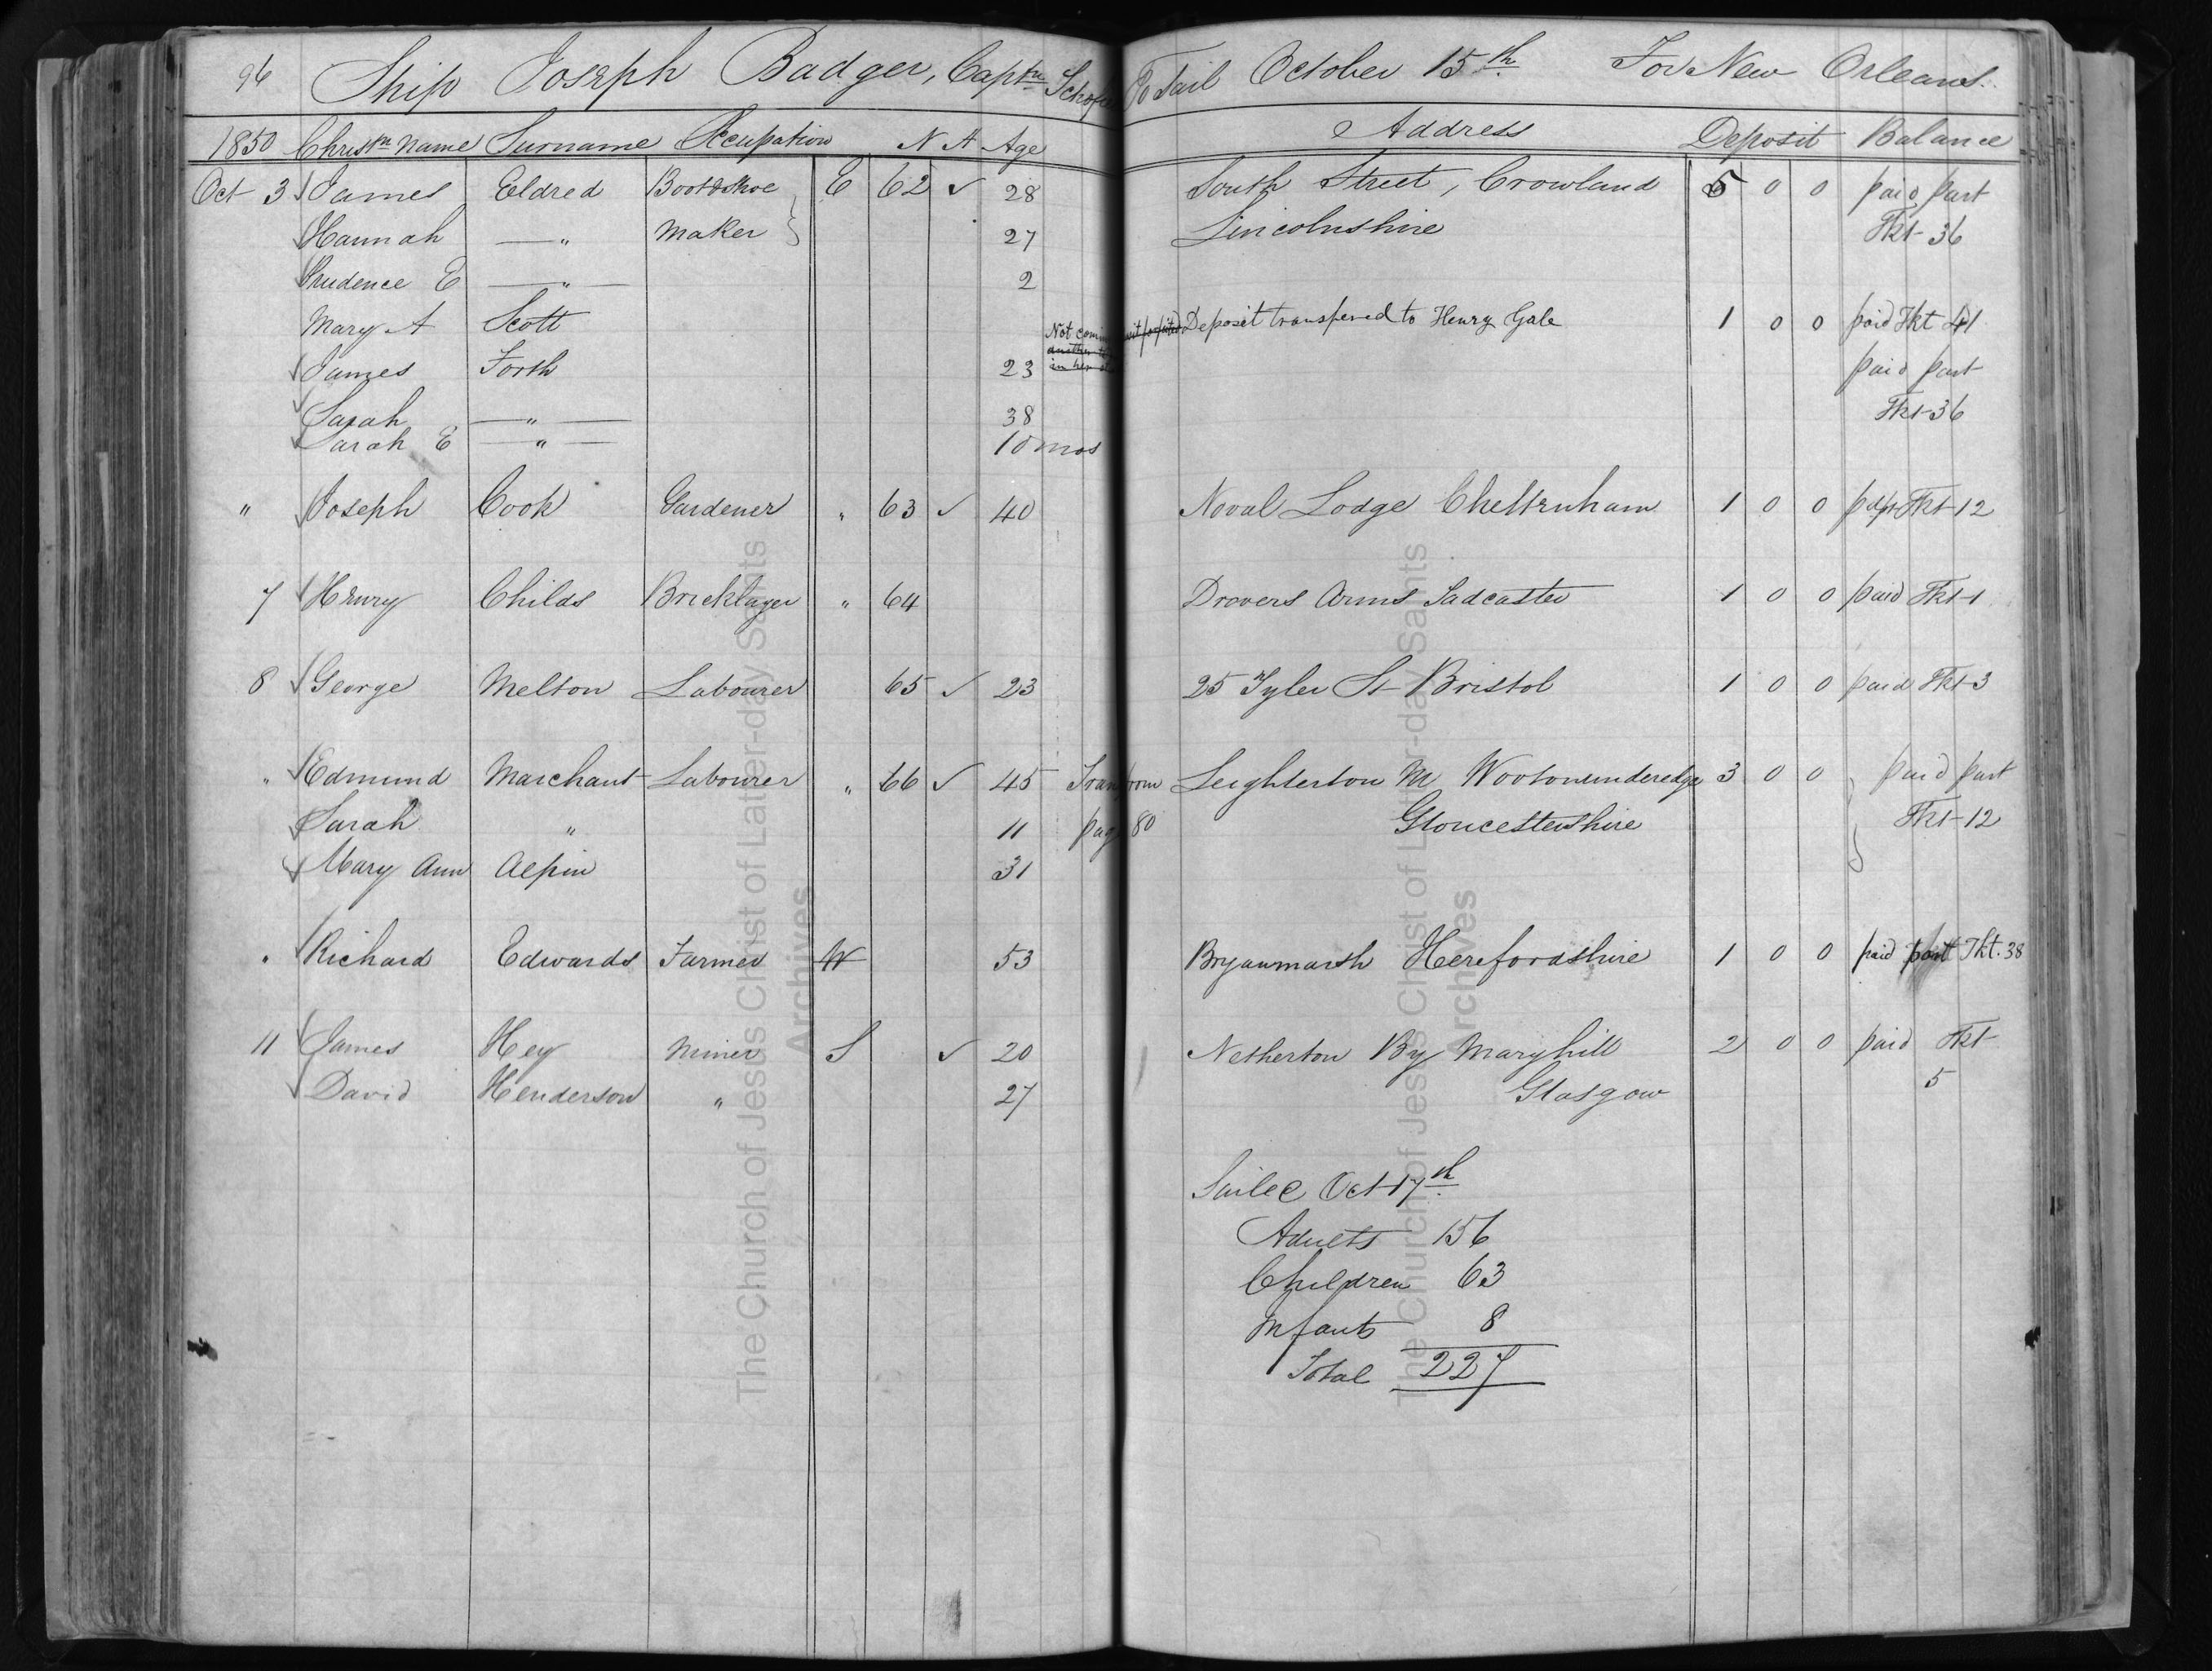 96 Ship Joseph Badger, Captn To Sail October 15th For New Orleans.
1850 Christn Name Surname Occupation N A Age Address Deposit Balance
Oct 3 James Eldred Boot & Shoe E 62 ✓ 28 South Street, Crowland 5 0 0 paid part
Hannah —"— Maker 27 Lincolnshire Tkt 36
Prudence E —"— 2
Mary A Scott Not coming Deposit transfered to Henry Gale 1 0 0 paid Tkt 41
James Forth 23 in her paid part
Sarah —"— 38 Tkt 36
Sarah E —"— 10 mos
" Joseph Cook Gardener " 63 ✓ 40 Noval Lodge Cheltenham 1 0 0 Tkt 12
7 Henry Childs Bricklayer " 64 Drovers Arms Tadcaster 1 0 0 paid Tkt 1
8 George Melton Labourer 65 ✓ 23 25 Tyler St Bristol 1 0 0 paid Tkt 3
" Edmund Marchant Labourer " 66 ✓ 45 Tran from Leighterton Nr Wootonunderedge 3 0 0 paid part
Sarah " 11 pag 80 Gloucestershire Tkt 12
Mary Ann Alpin 31
" Richard Edwards Farmer W 53 Bryanmarsh Herefordshire 1 0 0 paid part Tkt. 38
11 James Hey Miner S ✓ 20 Netherton By Maryhill 2 0 0 paid Tkt
David Henderson " 27 Glasgow 5
Sailed Oct 17th
Adults 156
Children 63
Infants 8
Total 227
The Church of Jesus Christ of Latter-day Saints
Archives
The Church of Jesus Christ of Latter-day Saints
Archives